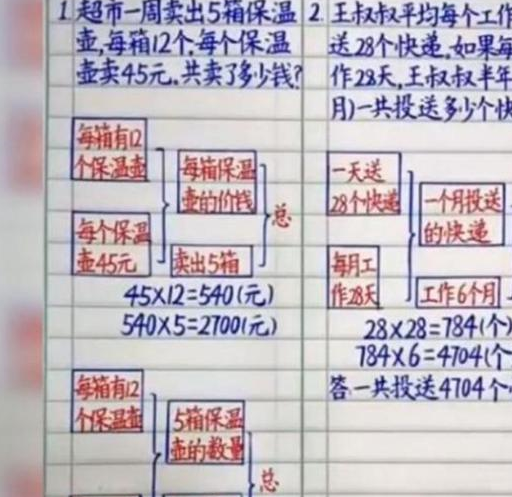 1.超市一周卖出5箱保温
壶,每箱12个,每个保温
壶卖45元.共卖了多少钱?
每箱有12
个保温壶
每箱保温
壶的价钱
总
每个保温
壶45元
卖出5箱
45×12=540(元)
540×5=2700(元)
每箱有12
个保温壶
5箱保温
壶的数量
总
2.王叔叔平均每个工作
送28个快递,如果每
作28天,王叔叔半年
月)一共投送多少个快
一天送
28个快递
一个月投送
的快递
每月工
作28天
工作6个月
28×28=784(个)
784×6=4704(个
答一共投送4704个